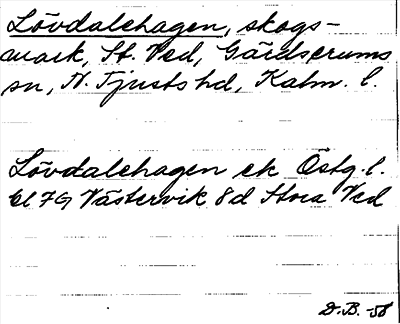 Lövdalehagen, skogs-
mark, St. Ved, Gärdserums
sn, N. Tjusts hd, Kalm. l.
Lövdalehagen ek Östg. l.
bl 7G Västervik 8d Stora Ved
D.B. -58